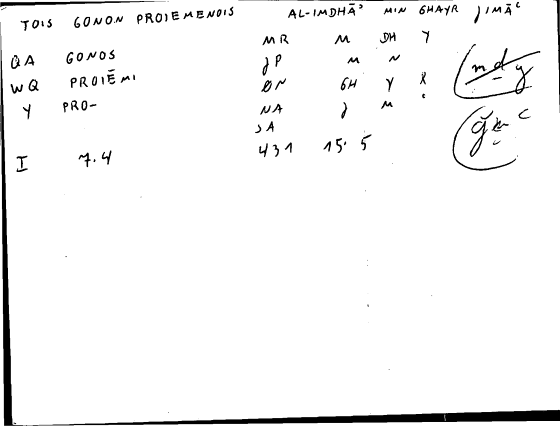 TOIS GONON PROIEMENOIS AL-IMDHĀʾ MIN GHAYR JIMĀʿ
MR M DH Y
QA GONOS JP M N
WQ PROIĒMI ØN GH Y R
Y PRO- NA J M ʿ
JA
I 7.4 431 15. 5
m d y
ǧ m ʿ